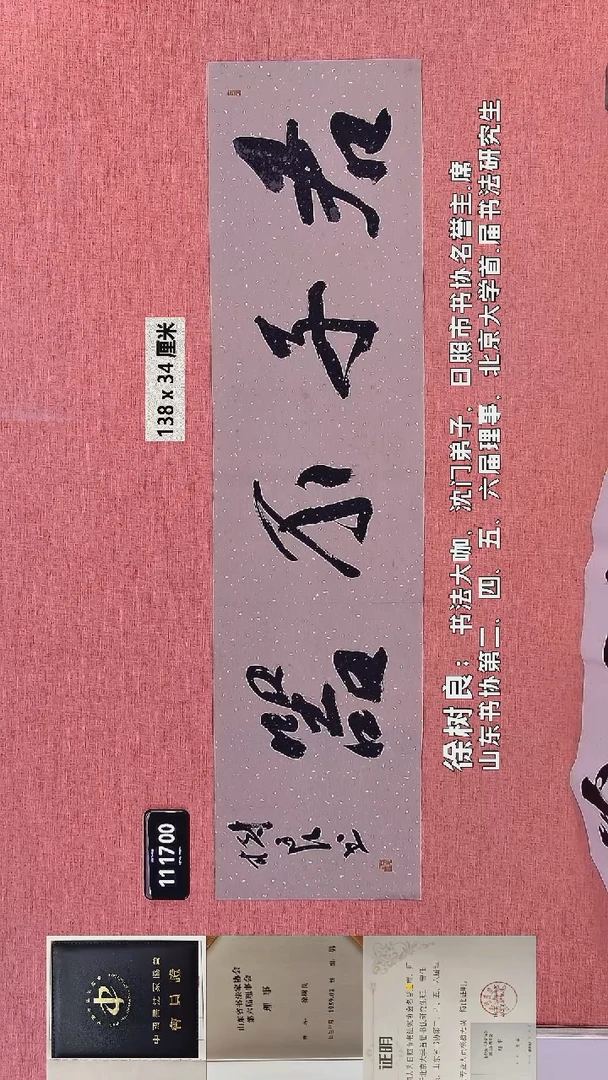 138 x 34 厘米
11 1700
君子不器
树良书
徐树良：书法大咖，沈门弟子，日照市书协名誉主席
山东书协第二、四、五、六届理事，北京大学首届书法研究生
會員證
山东省书法家协会
第六届理事会
理事
证明